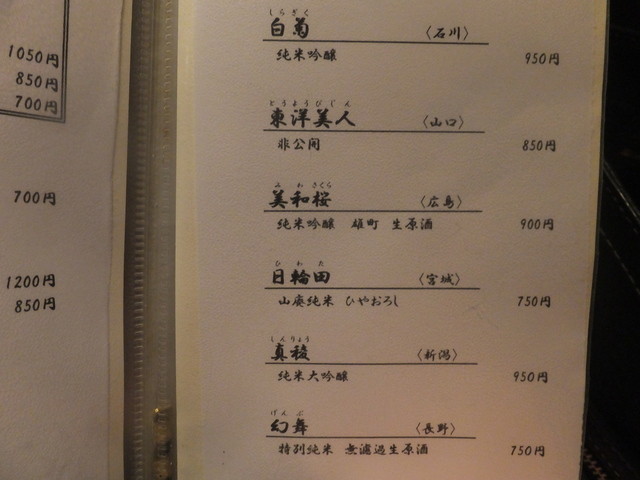 1050円
850円
700円
700円
1200円
850円
しらぎく
白菊 〈石川〉
純米吟醸 950円
とうようびじん
東洋美人 〈山口〉
非公開 850円
みわさくら
美和桜 〈広島〉
純米吟醸 雄町 生原酒 900円
ひわた
日輪田 〈宮城〉
山廃純米 ひやおろし 750円
しんりょう
真稜 〈新潟〉
純米大吟醸 950円
げんぶ
幻舞 〈長野〉
特別純米 無濾過生原酒 750円